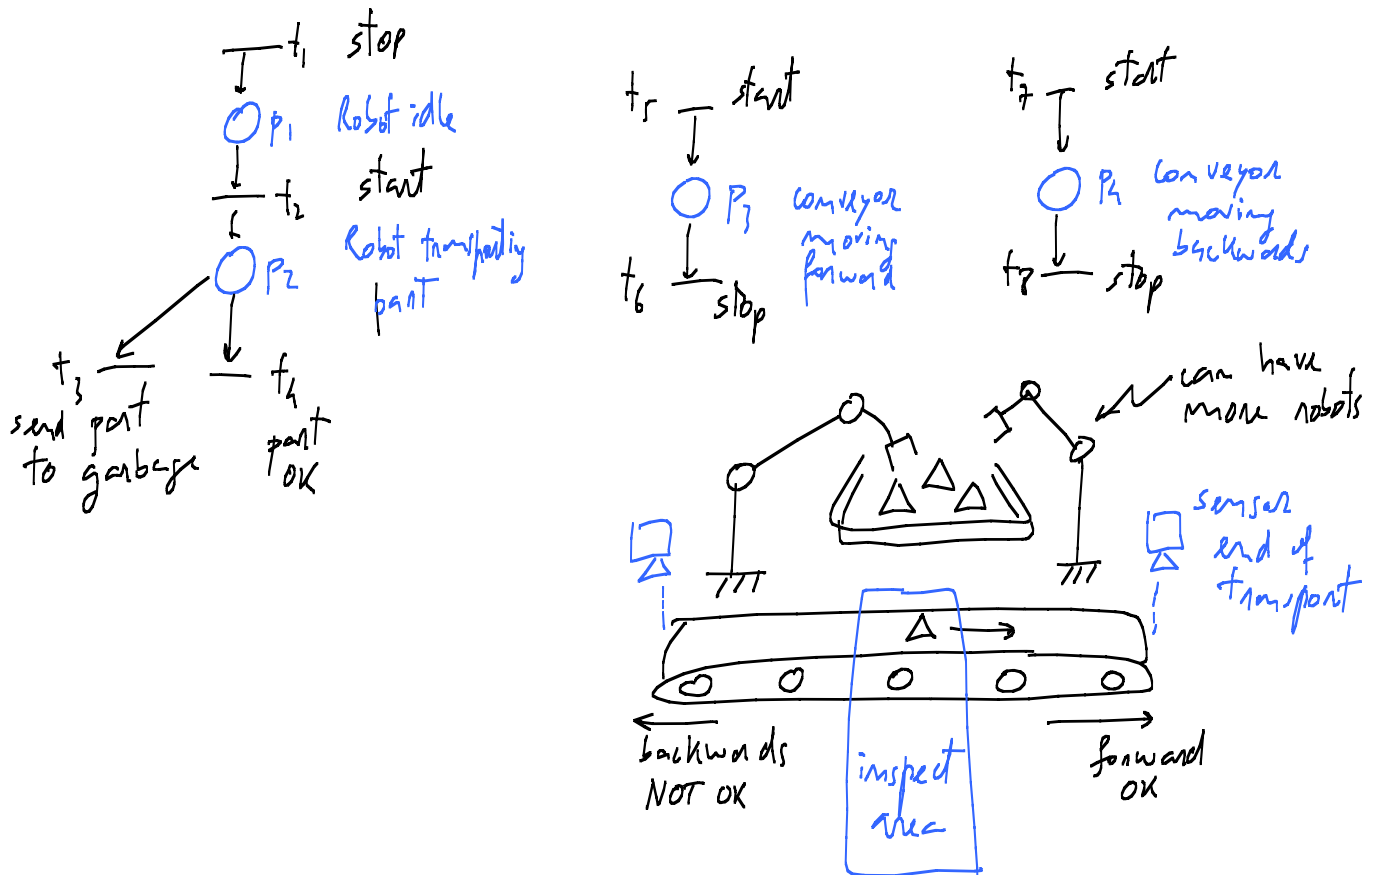 t1 stop
P1 Robot idle
t2 start
P2 Robot transporting
part
t3
send part
to garbage
t4
part
OK
t5 start
P3 conveyor
moving
forward
t6 stop
t7 start
P4 conveyor
moving
backwards
t8 stop
can have
more robots
sensor
end of
transport
backwards
NOT OK
inspect
area
forward
OK